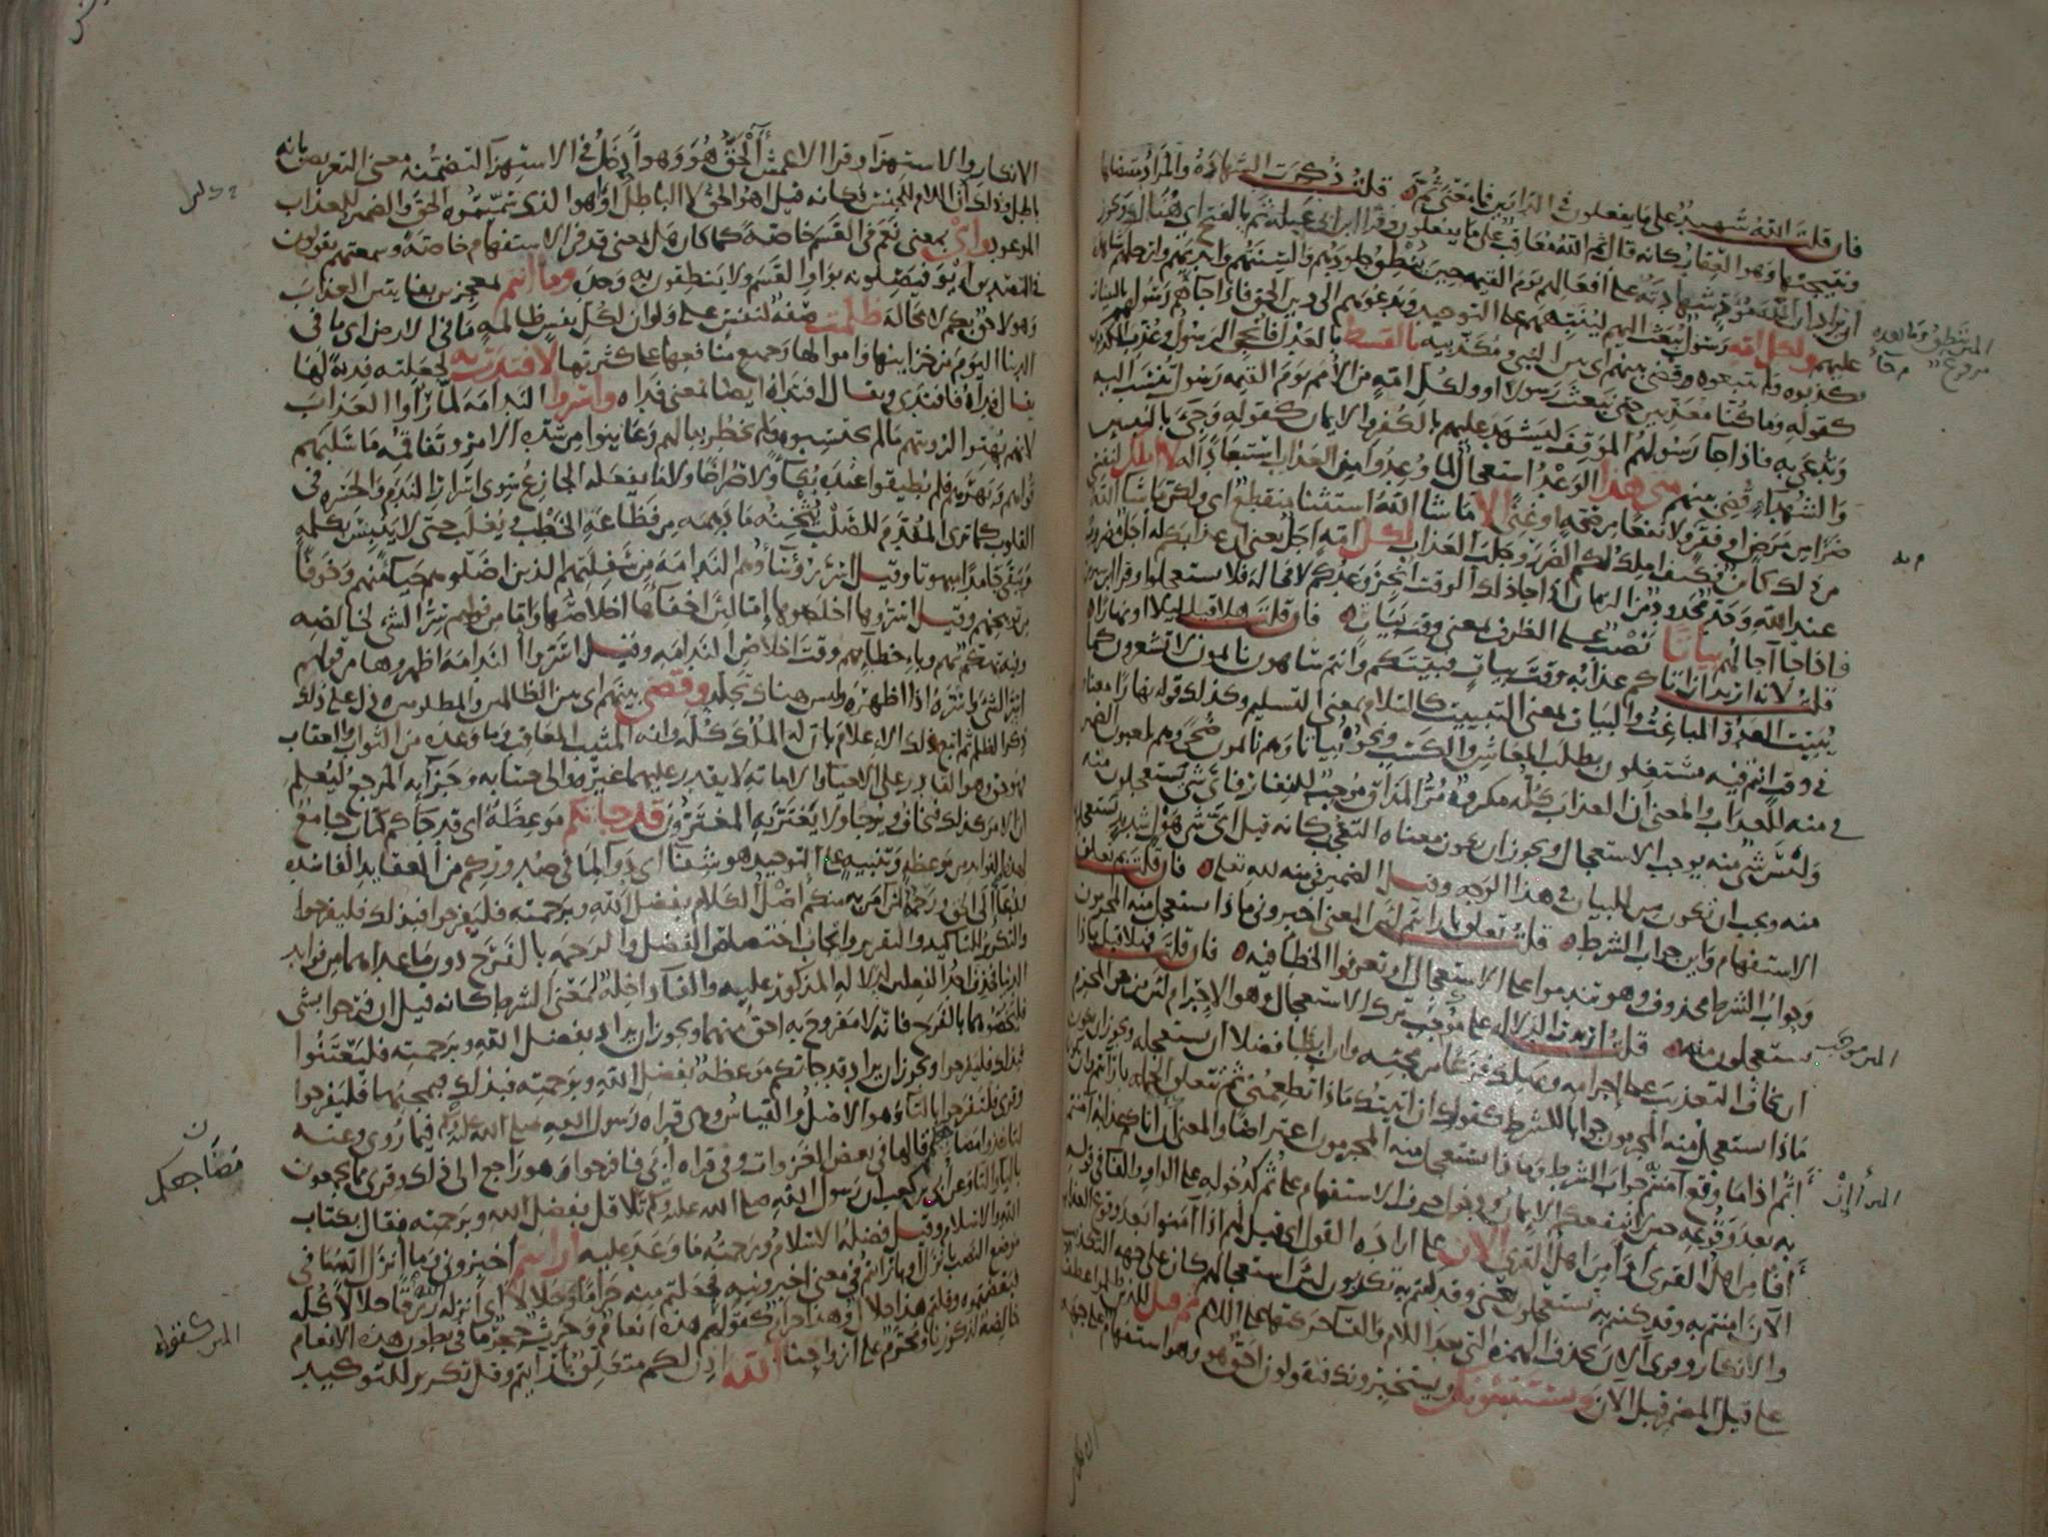 فان قلت الله شهيد على ما يفعلون في الدارين فما معنى ثم قلت ذكرت الشهادة والمراد مقتضاها
ونتيجتها وهو العقاب كانه قال ثم الله معاقب على ما يفعلون وقرا ابن ابي عبلة ثم بالفتح اي هنالك ويجوز
ان يراد ان الله مؤد شهادته على افعالهم يوم القيمة حين ينطق جلودهم والسنتهم وايديهم وارجلهم شاهدة
عليهم ولكل امة رسول يبعث اليهم لينبههم على التوحيد ويدعوهم الى دين الحق فاذا جاهم رسولهم بالبينات
فكذبوه ولم يتبعوه وقضي بينهم اي بين النبي ومكذبيه بالقسط بالعدل فانجي الرسول وعذب المكذبون
كقوله وما كنا معذبين حتى نبعث رسولا او ولكل امة من الامم يوم القيمة رسول تنسب اليه
وتدعى به فاذا جا رسولهم الموقف ليشهد عليهم بالكفر والايمان كقوله وجئ بالنبيين
والشهداء وقضي بينهم متى هذا الوعد استعجال لما وعدوا من العذاب استبعادا له لا املك لنفسي
ضرا من مرض او فقر ولا نفعا من صحة او غنى الا ما شا الله استثنا منقطع اي ولكن ما شا الله
من ذلك كائن فكيف املك لكم الضرر وجلب العذاب لكل امة اجل يعني ان عذابكم له اجل مضروب
عند الله وحد محدود من الزمان اذا جا ذلك الوقت انجز وعدكم لا محالة فلا تستعجلوا وقرا ابن سيرين
فاذا جا آجالهم بياتا نصب على الظرف بمعنى وقت بيات فان قلت هلا قيل ليلا او نهارا
قلت لانه اريد ان اتاكم عذابه وقت بيات فبيتكم وانتم ساهون نائمون لا تشعرون كما
يبيت العدو المباغت والبيات بمعنى التبييت كالسلام بمعنى التسليم وكذلك قوله نهارا معناه
في وقت انتم فيه مشتغلون بطلب المعاش والكسب ونحوه بياتا وهم نائمون ضحى وهم يلعبون الضمير
في منه للعذاب والمعنى ان العذاب كله مكروه مر المذاق موجب للنفار فاي شي تستعجلون منه
وليس شي منه يوجب الاستعجال ويجوز ان يكون معناه التعجب كانه قيل اي شي هول شديد تستعجلون
منه ويجب ان تكون من للبيان في هذا الوجه وقيل الضمير في منه لله تعالى فان قلت بم تعلق
الاستفهام واين جواب الشرط قلت تعلق بارايتم لان المعنى اخبروني ماذا يستعجل منه المجرمون
وجواب الشرط محذوف وهو تندموا على الاستعجال او تعرفوا الخطا فيه فان قلت فهلا قيل ماذا
تستعجلون منه قلت اريدت الدلالة على موجب ترك الاستعجال وهو الاجرام لان من حق المجرم
ان يخاف التعذيب على اجرامه ويهلك فزعا من مجيئه وان ابطا فضلا ان يستعجله ويجوز ان يكون
ماذا يستعجل منه المجرمون جوابا للشرط كقولك ان اتيتك ماذا تطعمني ثم تتعلق الجملة بارايتم وان يكون
اثم اذا ما وقع آمنتم جواب الشرط وماذا يستعجل منه المجرمون اعتراضا والمعنى ان اتاكم عذابه آمنتم
به بعد وقوعه حين لا ينفعكم الايمان ودخول حرف الاستفهام على ثم كدخوله على الواو والفا في قوله
افامن اهل القرى اوامن اهل القرى الان على ارادة القول اي قيل لهم اذا آمنوا بعد وقوع العذاب
الآن امنتم به وقد كنتم به تستعجلون يعني وقد كنتم به تكذبون لان استعجالهم كان على جهة التكذيب
والانكار وقرئ آلان بحذف الهمزة التي بعد اللام والقا حركتها على اللام ثم قيل للذين ظلموا عطف
على قيل المضمر قبل الآن ويستنبئونك ويستخبرونك فيقولون احق هو وهو استفهام على جهة
المر ينطق وما بعده
مرفوع
المر موجب
المر أإن
الانكار والاستهزا وقرا الاعمش آلحق هو وهو ادخل في الاستهزا لتضمنه معنى التعريض بانه
باطل وذلك ان اللام للجنس فكانه قيل اهو الحق لا الباطل او اهو الذي سميتموه الحق والضمير للعذاب
الموعود واي بمعنى نعم في القسم خاصة كما كان هل بمعنى قد في الاستفهام خاصة وسمعتهم يقولون
في التصديق ايو فيصلونه بواو القسم ولا ينطقون به وحده وما انتم بمعجزين بفايتين العذاب
وهو لاحق بكم لا محالة ظلمت صفة لنفس على ولو ان لكل نفس ظالمة ما في الارض اي ما في
الدنيا اليوم من خزاينها واموالها وجميع منافعها على كثرتها لافتدت به لجعلته فدية لها
يقال فداه فافتدى ويقال افتداه ايضا بمعنى فداه واسروا الندامة لما راوا العذاب
لانهم بهتوا لرؤيتهم ما لم يحتسبوه ولم يخطر ببالهم وعاينوا من شدة الامر وتفاقمه ما سلبهم
قواهم وبهرهم فلم يطيقوا عنده بكاء ولا صراخا ولا ما يفعله الجازع سوى اسرار الندم والحسرة في
القلوب كما ترى المقدم للصلب يثخنه ما دهمه من فظاعة الخطب ويغلب حتى لا ينبس بكلمة
ويبقى جامدا مبهوتا وقيل اسر رؤساؤهم الندامة من سفلتهم الذين اضلوهم حياء منهم وخوفا
من توبيخهم وقيل اسروها اخلصوها اما لان اخفاءها اخلاصها واما من قولهم سر الشي لخالصه
وفيه تهكم بهم وباخطائهم وقت اخلاص الندامة وقيل اسروا الندامة اظهروها من قولهم
اسر الشي واشره اذا اظهره وليس هناك تجلد وقضى بينهم اي بين الظالمين والمظلومين دل على ذلك
ذكر الظلم ثم اتبع ذلك الاعلام بان له الملك كله وانه المثيب المعاقب وما وعده من الثواب والعقاب
فهو حق وهو القادر على الاحيا والاماتة لا يقدر عليهما غيره والى حسابه وجزايه المرجع ليعلم
ان الامر كذلك فيخاف ويرجا ولا يغتر به المغترون قد جاتكم موعظة اي قد جاكم كتاب جامع
لهذه الفوايد من موعظة وتنبيه على التوحيد هو شفا اي دوا لما في صدوركم من العقايد الفاسدة
ودعا الى الحق ورحمة لمن آمن به منكم اصل الكلام بفضل الله وبرحمته فليفرحوا فبذلك فليفرحوا
والتكرير للتاكيد والتقرير وايجاب اختصاص الفضل والرحمة بالفرح دون ما عداهما من فوايد
الدنيا فحذف احد الفعلين لدلالة المذكور عليه والفا داخلة لمعنى الشرط كانه قيل ان فرحوا بشي
فليخصوهما بالفرح فانه لا مفروح به احق منهما ويجوز ان يراد بفضل الله وبرحمته فليعتنوا
فبذلك فليفرحوا ويجوز ان يراد قد جاتكم موعظة بفضل الله وبرحمته فبذلك فبمجيئها فليفرحوا
وقرئ فلتفرحوا بالتا وهو الاصل والقياس وهي قراه رسول الله صلى الله عليه وسلم فيما روي وعنه
لتاخذوا مصافكم قالها في بعض الغزوات وفي قراه أبي فافرحوا هو راجع الى ذلك وقرئ مما يجمعون
باليا والتا وعن أبي بن كعب ان رسول الله صلى الله عليه وسلم تلا قل بفضل الله وبرحمته فقال بكتاب
الله والاسلام وقيل فضله الاسلام ورحمته ما وعد عليه ارايتم اخبروني وما انزل الله ما في
موضع النصب بانزل او بارايتم في معنى اخبرونيه فجعلتم منه حراما وحلالا اي انزله الله رزقا حلالا كله
فبعضتموه وقلتم هذا حلال وهذا حرام كقولهم هذه انعام وحرث حجر ما في بطون هذه الانعام
خالصة لذكورنا ومحرم على ازواجنا آلله اذن لكم متعلق بارايتم وقل تكرير للتوكيد
مصاجعكم
المر كقوله